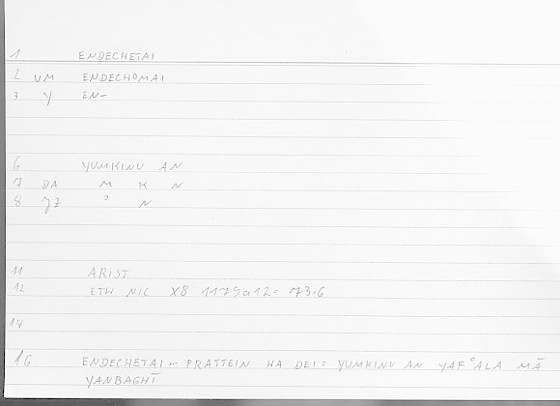 1 ENDECHETAI
2 UM ENDECHOMAI
3 Y EN-
6 YUMKINU AN
7 DA M K N
8 JZ ʾ N
11 ARIST
12 ETH NIC X8 1175a12= 73.6
14
16 ENDECHETAI... PRATTEIN HA DEI= YUMKINU AN YAFʿALA MĀ
YANBAGHĪ